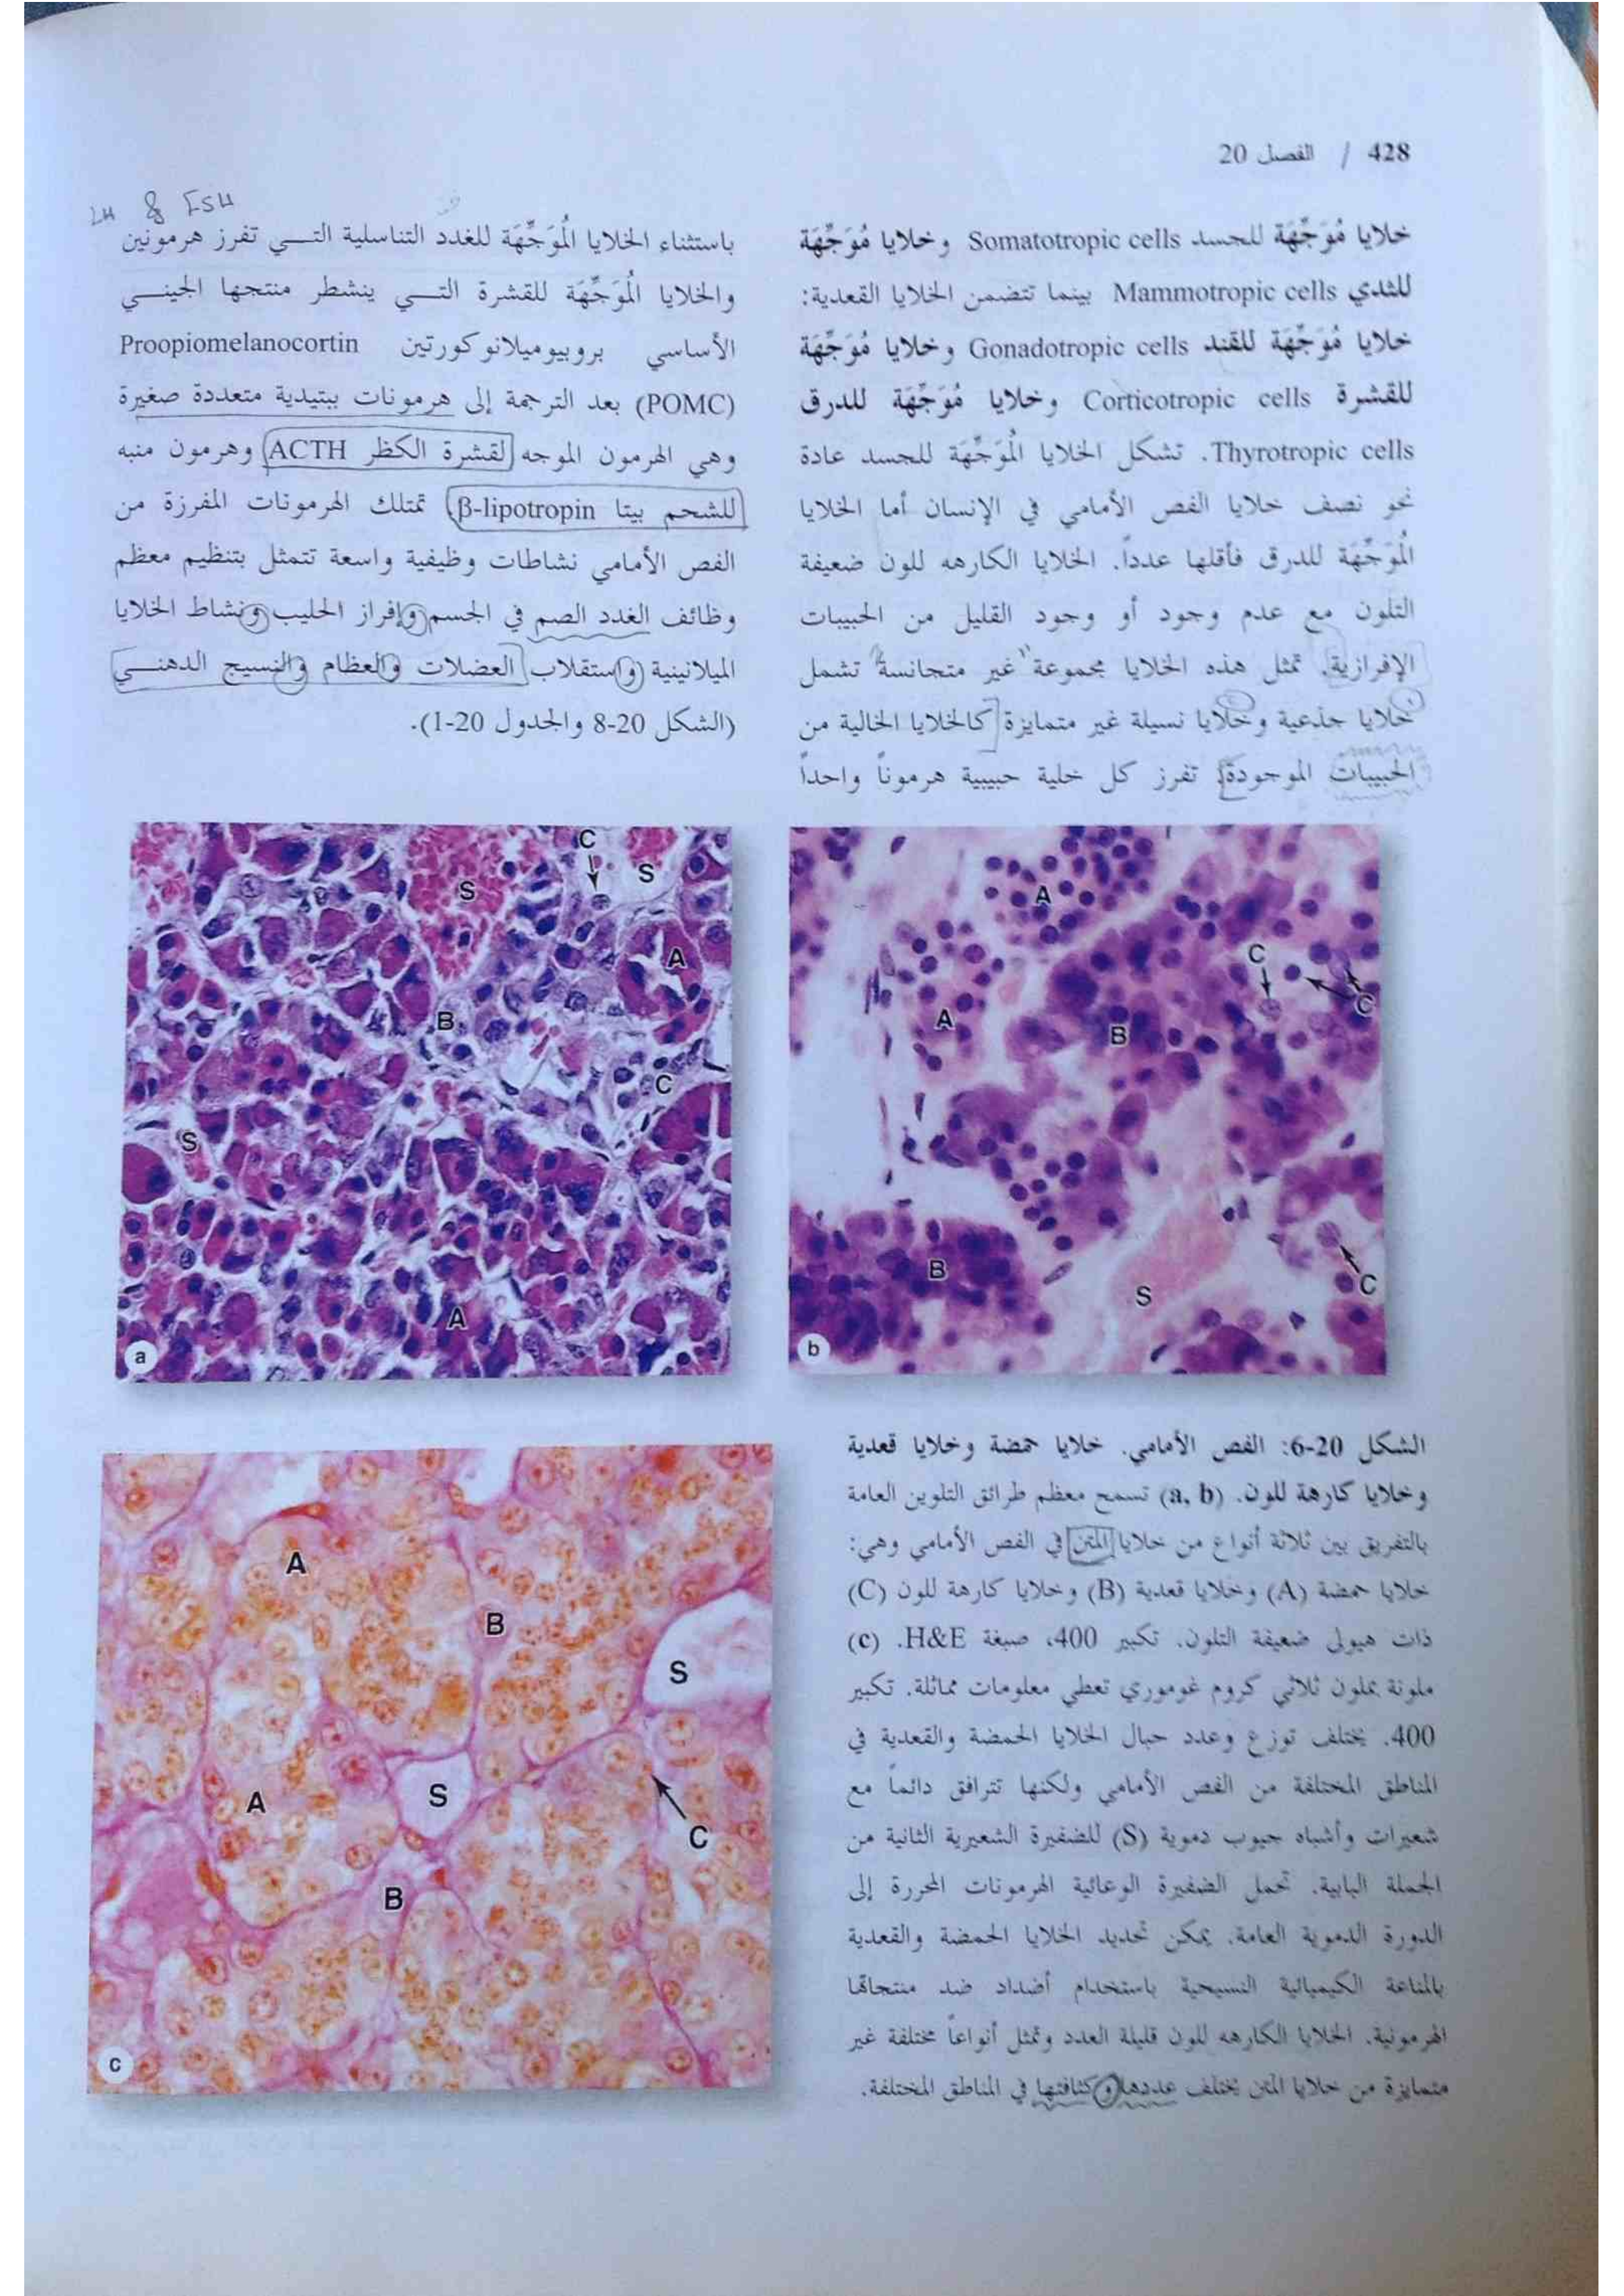 428 / الفصل 20
خلايا مُوَجِّهَة للجسد Somatotropic cells وخلايا مُوَجِّهَة
للثدي Mammotropic cells بينما تتضمن الخلايا القعدية:
خلايا مُوَجِّهَة للقند Gonadotropic cells وخلايا مُوَجِّهَة
للقشرة Corticotropic cells وخلايا مُوَجِّهَة للدرق
Thyrotropic cells. تشكل الخلايا المُوَجِّهَة للجسد عادة
نحو نصف خلايا الفص الأمامي في الإنسان أما الخلايا
المُوَجِّهَة للدرق فأقلها عدداً. الخلايا الكارهه للون ضعيفة
التلون مع عدم وجود أو وجود القليل من الحبيبات
الإفرازية. تمثل هذه الخلايا مجموعة غير متجانسة تشمل
خلايا جذعية وخلايا نسيلة غير متمايزة كالخلايا الخالية من
الحبيبات الموجودة. تفرز كل خلية حبيبية هرموناً واحداً
LH & FSH
باستثناء الخلايا المُوَجِّهَة للغدد التناسلية التي تفرز هرمونين
والخلايا المُوَجِّهَة للقشرة التي ينشطر منتجها الجيني
الأساسي بروبيوميلانوكورتين Proopiomelanocortin
(POMC) بعد الترجمة إلى هرمونات ببتيدية متعددة صغيرة
وهي الهرمون الموجه لقشرة الكظر ACTH وهرمون منبه
للشحم بيتا β-lipotropin. تمتلك الهرمونات المفرزة من
الفص الأمامي نشاطات وظيفية واسعة تتمثل بتنظيم معظم
وظائف الغدد الصم في الجسم وإفراز الحليب ونشاط الخلايا
الميلانينية واستقلاب العضلات والعظام والنسيج الدهني
(الشكل 20-8 والجدول 20-1).
C
S
S
A
B
C
S
A
a
A
C
A
C
B
B
S
C
b
الشكل 20-6: الفص الأمامي. خلايا حمضة وخلايا قعدية
وخلايا كارهة للون. (a, b) تسمح معظم طرائق التلوين العامة
بالتفريق بين ثلاثة أنواع من خلايا المتن في الفص الأمامي وهي:
خلايا حمضة (A) وخلايا قعدية (B) وخلايا كارهة للون (C)
ذات هيولى ضعيفة التلون. تكبير 400، صبغة H&E. (c)
ملونة بملون ثلاثي كروم غوموري تعطي معلومات مماثلة. تكبير
400. يختلف توزع وعدد حبال الخلايا الحمضة والقعدية في
المناطق المختلفة من الفص الأمامي ولكنها تترافق دائماً مع
شعيرات وأشباه جيوب دموية (S) للضفيرة الشعيرية الثانية من
الجملة البابية. تحمل الضفيرة الوعائية الهرمونات المحررة إلى
الدورة الدموية العامة. يمكن تحديد الخلايا الحمضة والقعدية
بالمناعة الكيميائية النسيجية باستخدام أضداد ضد منتجاتها
الهرمونية. الخلايا الكارهه للون قليلة العدد وتمثل أنواعاً مختلفة غير
متمايزة من خلايا المتن يختلف عددها وكثافتها في المناطق المختلفة.
A
B
S
A
S
C
B
c